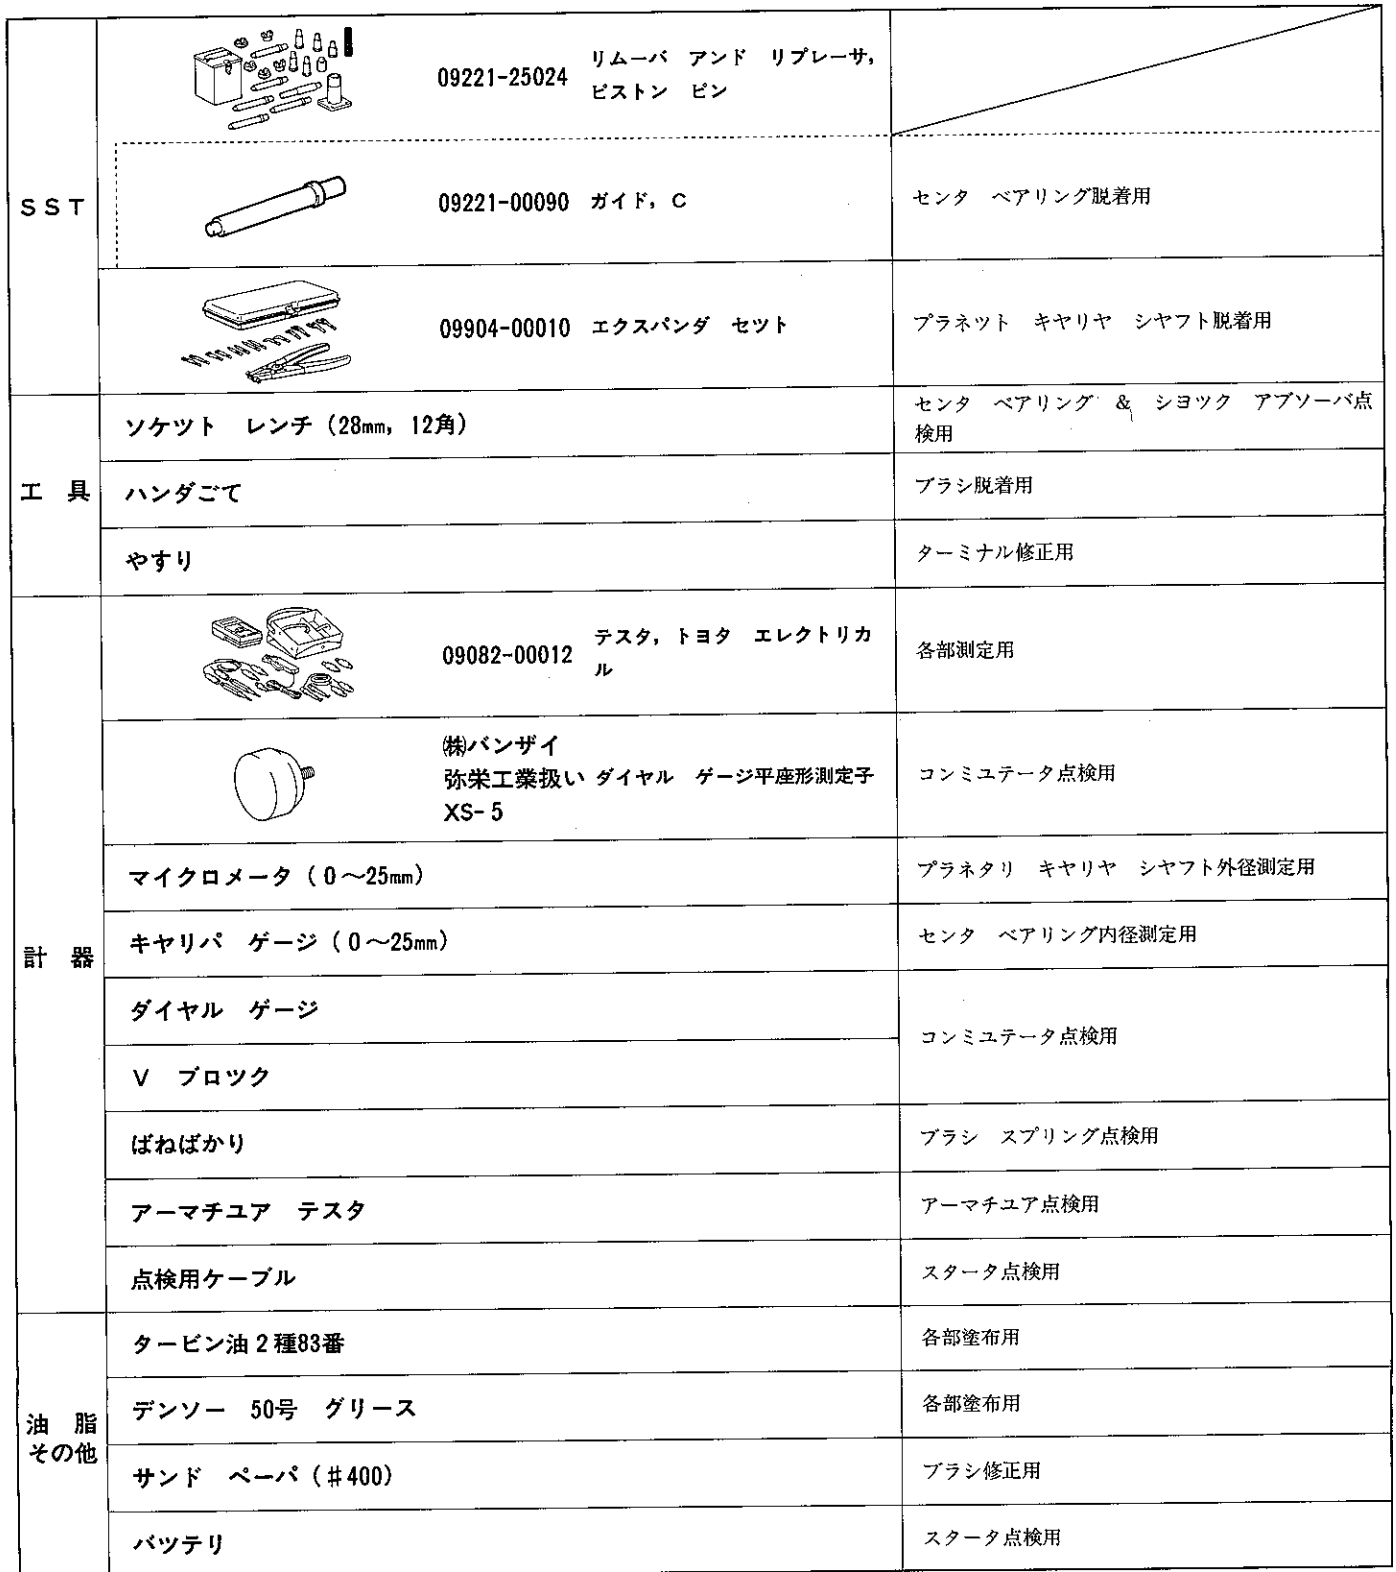 09221-25024 リムーバ アンド リプレーサ,
ピストン ピン
SST
09221-00090 ガイド, C センタ ベアリング脱着用
09904-00010 エクスパンダ セツト プラネツト キヤリヤ シヤフト脱着用
工 具
ソケツト レンチ (28mm, 12角) センタ ベアリング & シヨツク アブソーバ点
検用
ハンダごて ブラシ脱着用
やすり ターミナル修正用
計 器
09082-00012 テスタ, トヨタ エレクトリカ
ル
各部測定用
㈱バンザイ
弥栄工業扱い ダイヤル ゲージ平座形測定子
XS-5
コンミユテータ点検用
マイクロメータ (0〜25mm) プラネタリ キヤリヤ シヤフト外径測定用
キヤリパ ゲージ (0〜25mm) センタ ベアリング内径測定用
ダイヤル ゲージ
コンミユテータ点検用
V ブロツク
ばねばかり ブラシ スプリング点検用
アーマチユア テスタ アーマチユア点検用
点検用ケーブル スタータ点検用
油 脂
その他
タービン油2種83番 各部塗布用
デンソー 50号 グリース 各部塗布用
サンド ペーパ (#400) ブラシ修正用
バツテリ スタータ点検用